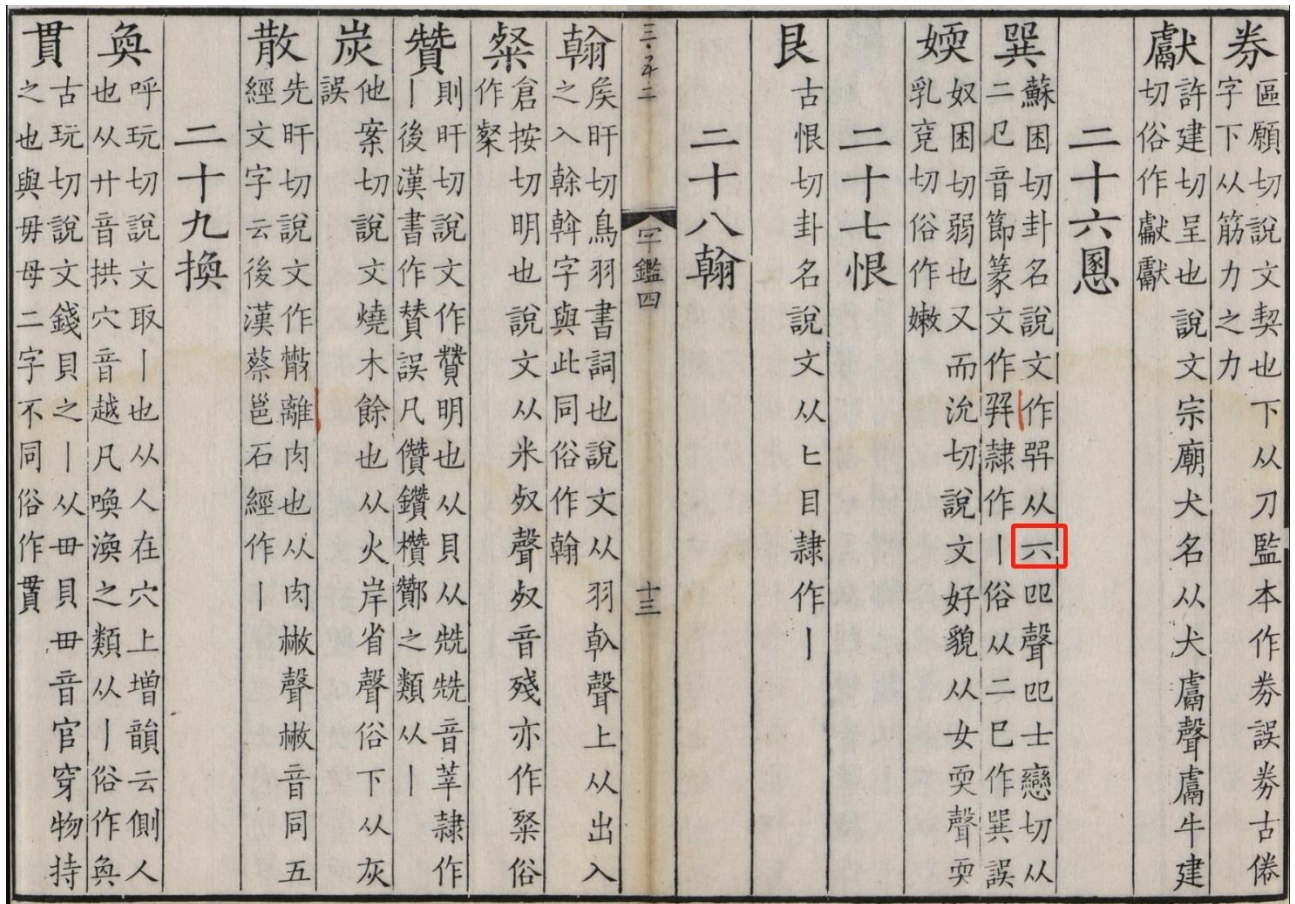 券區願切說文契也下从刀監本作劵誤劵古倦
字下从筋力之力
獻許建切呈也說文宗廟犬名从犬鬳聲鬳牛建
切俗作獻獻
二十六慁
巽蘇困切卦名說文作𢁁从六𠨎聲𠨎士戀切从
二㔾音節篆文作𢁅隸作丨俗从二巳作巽誤
㜛奴困切弱也又而沇切說文好貌从女耎聲耎
乳兗切俗作嫩
二十七恨
艮古恨切卦名說文从匕目隸作丨
二十八翰
三·五二
字鑑四
十三
翰矦旰切鳥羽書詞也說文从羽倝聲上从出入
之入榦斡字與此同俗作翰
粲倉按切明也說文从米𣦼聲𣦼音殘亦作粲俗
作粲
贊則旰切說文作贊明也从貝从兟兟音莘隸作
丨後漢書作賛誤凡儹鑽欑酇之類从丨
炭他案切說文燒木餘也从火岸省聲俗下从灰
誤
散先旰切說文作㪔離肉也从肉㪔聲㪔音同五
經文字云後漢蔡邕石經作丨
二十九換
奐呼玩切說文取丨也从人在穴上增韻云側人
也从廾音拱穴音越凡喚渙之類从丨俗作奐
貫古玩切說文錢貝之丨从毌貝毌音官穿物持
之也與毋母二字不同俗作貫